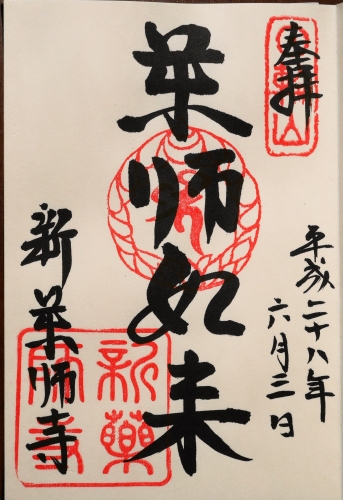 奉拝
平成二十八年
六月三日
薬師如来
新薬師寺
新薬
師寺